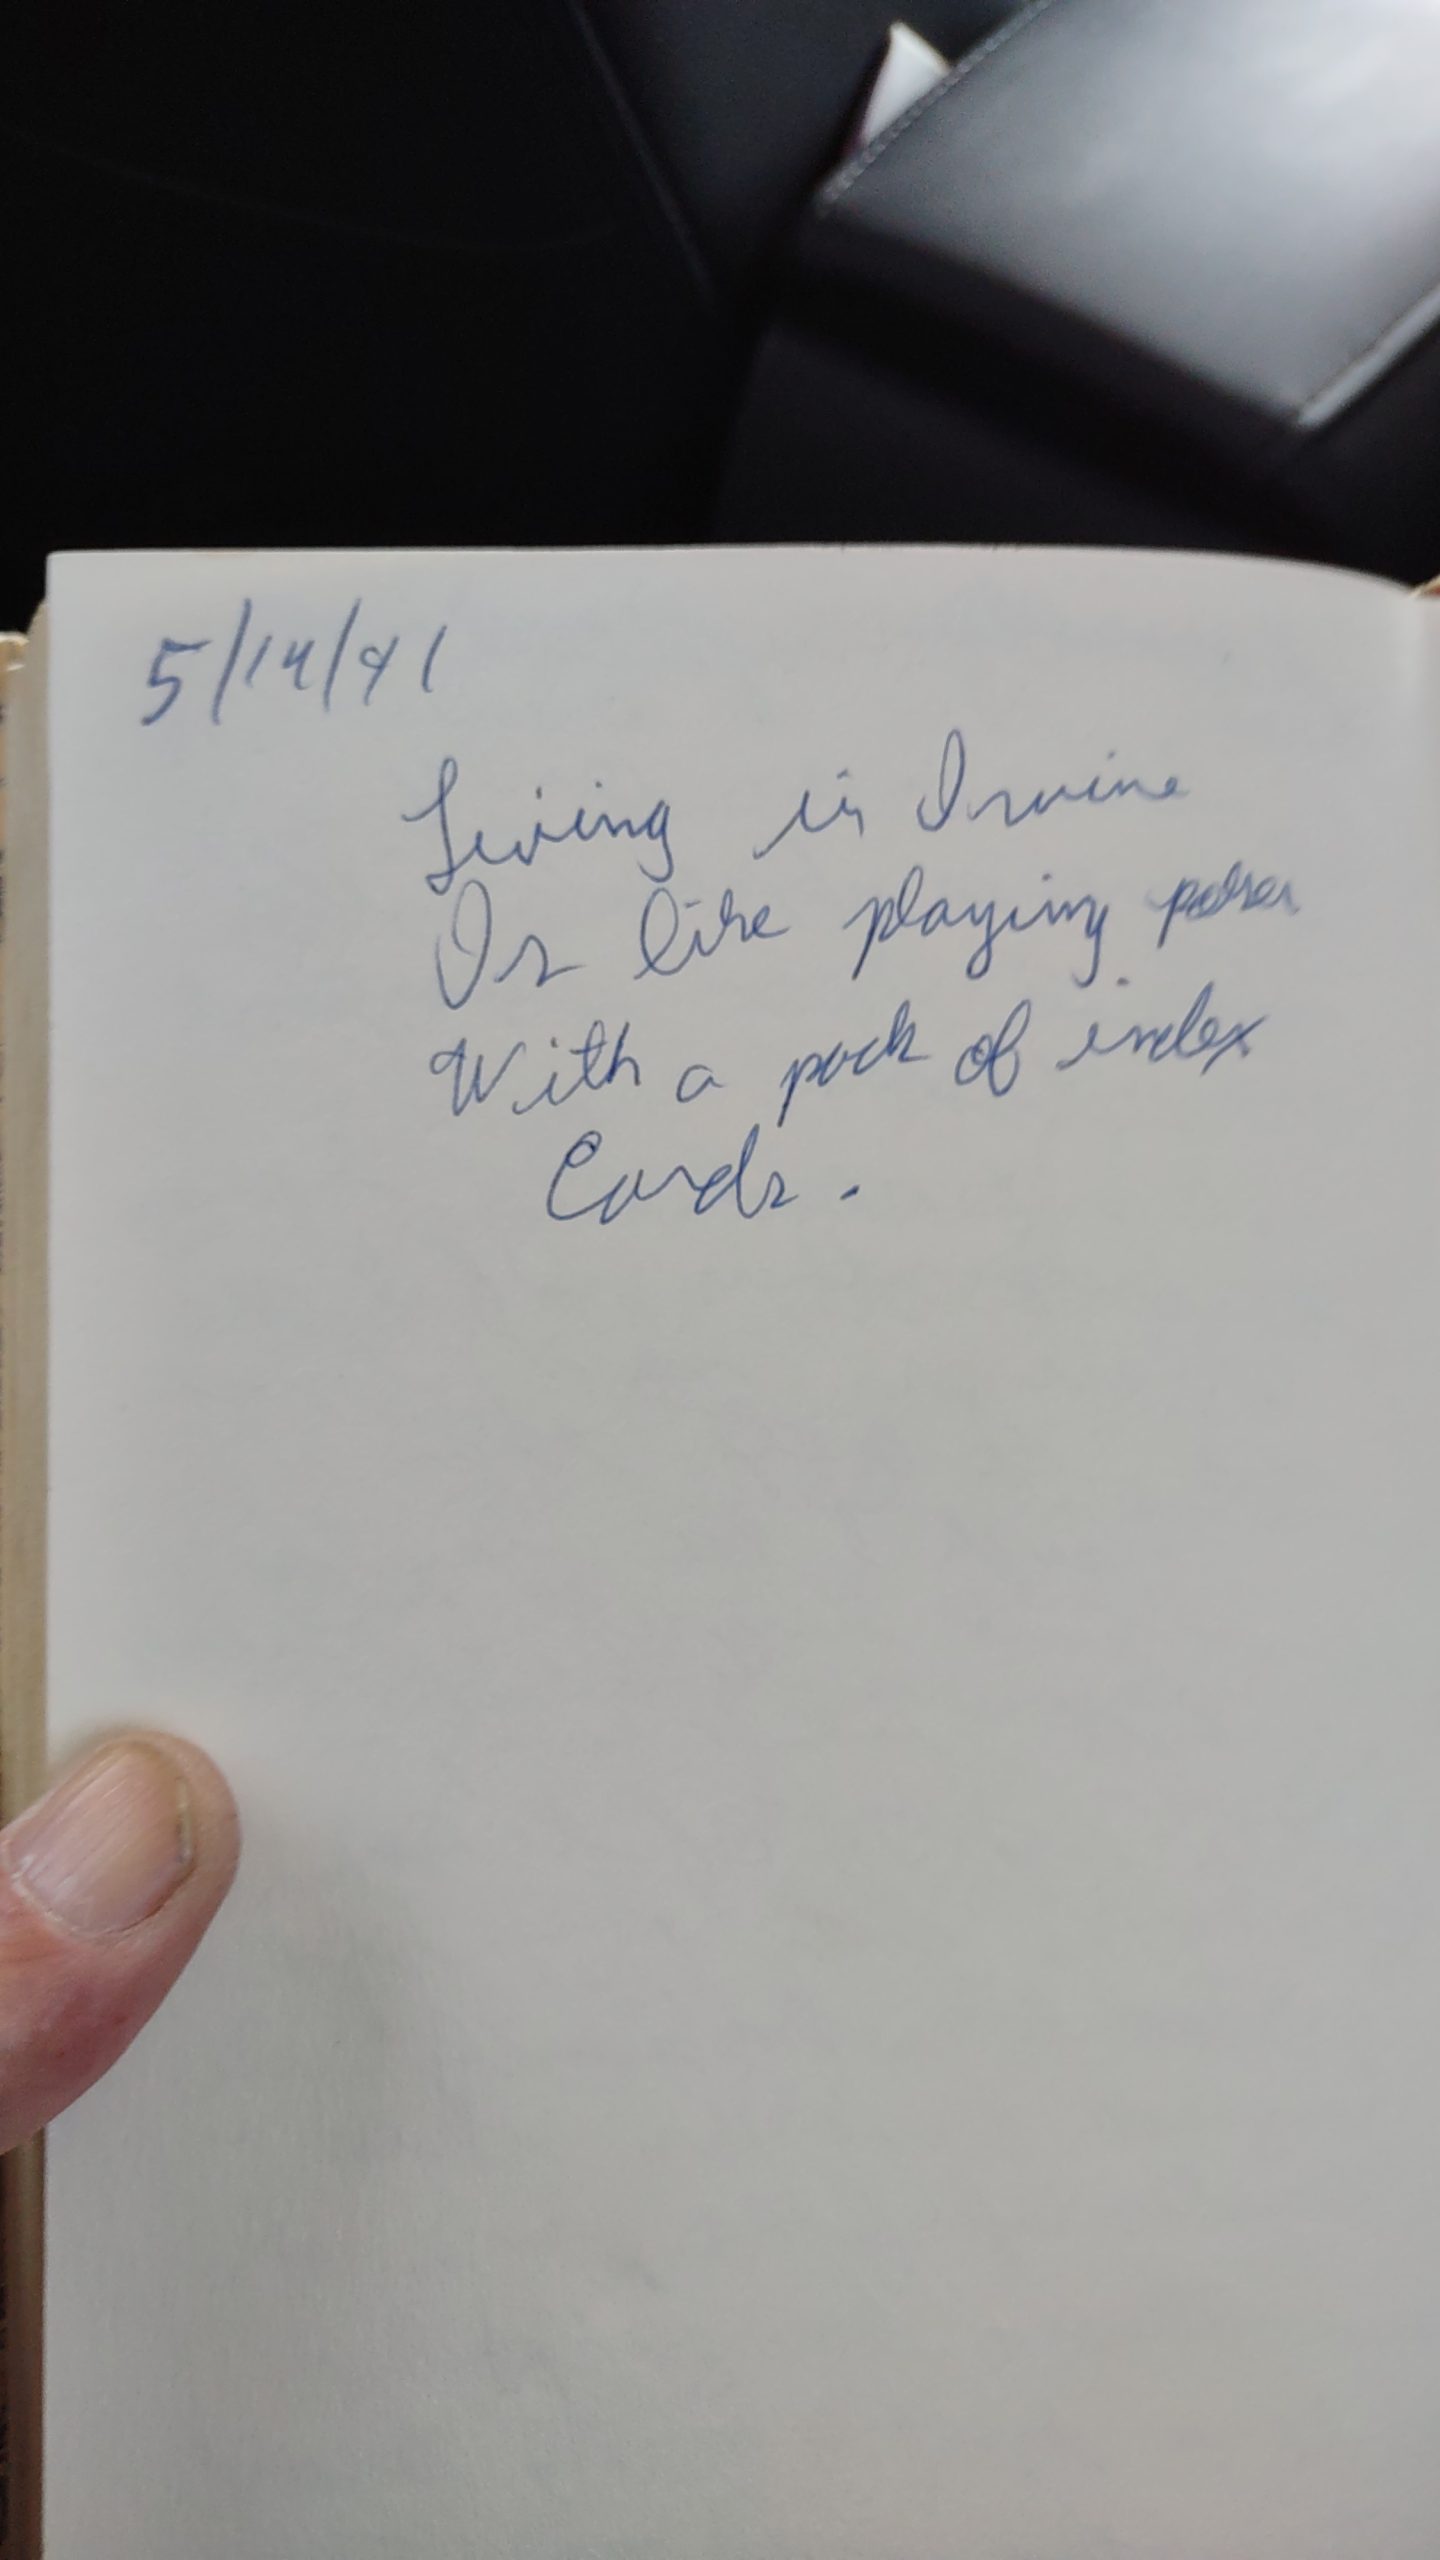 5/14/91
Living in Irvine
Is like playing poker
With a pack of index
Cards.